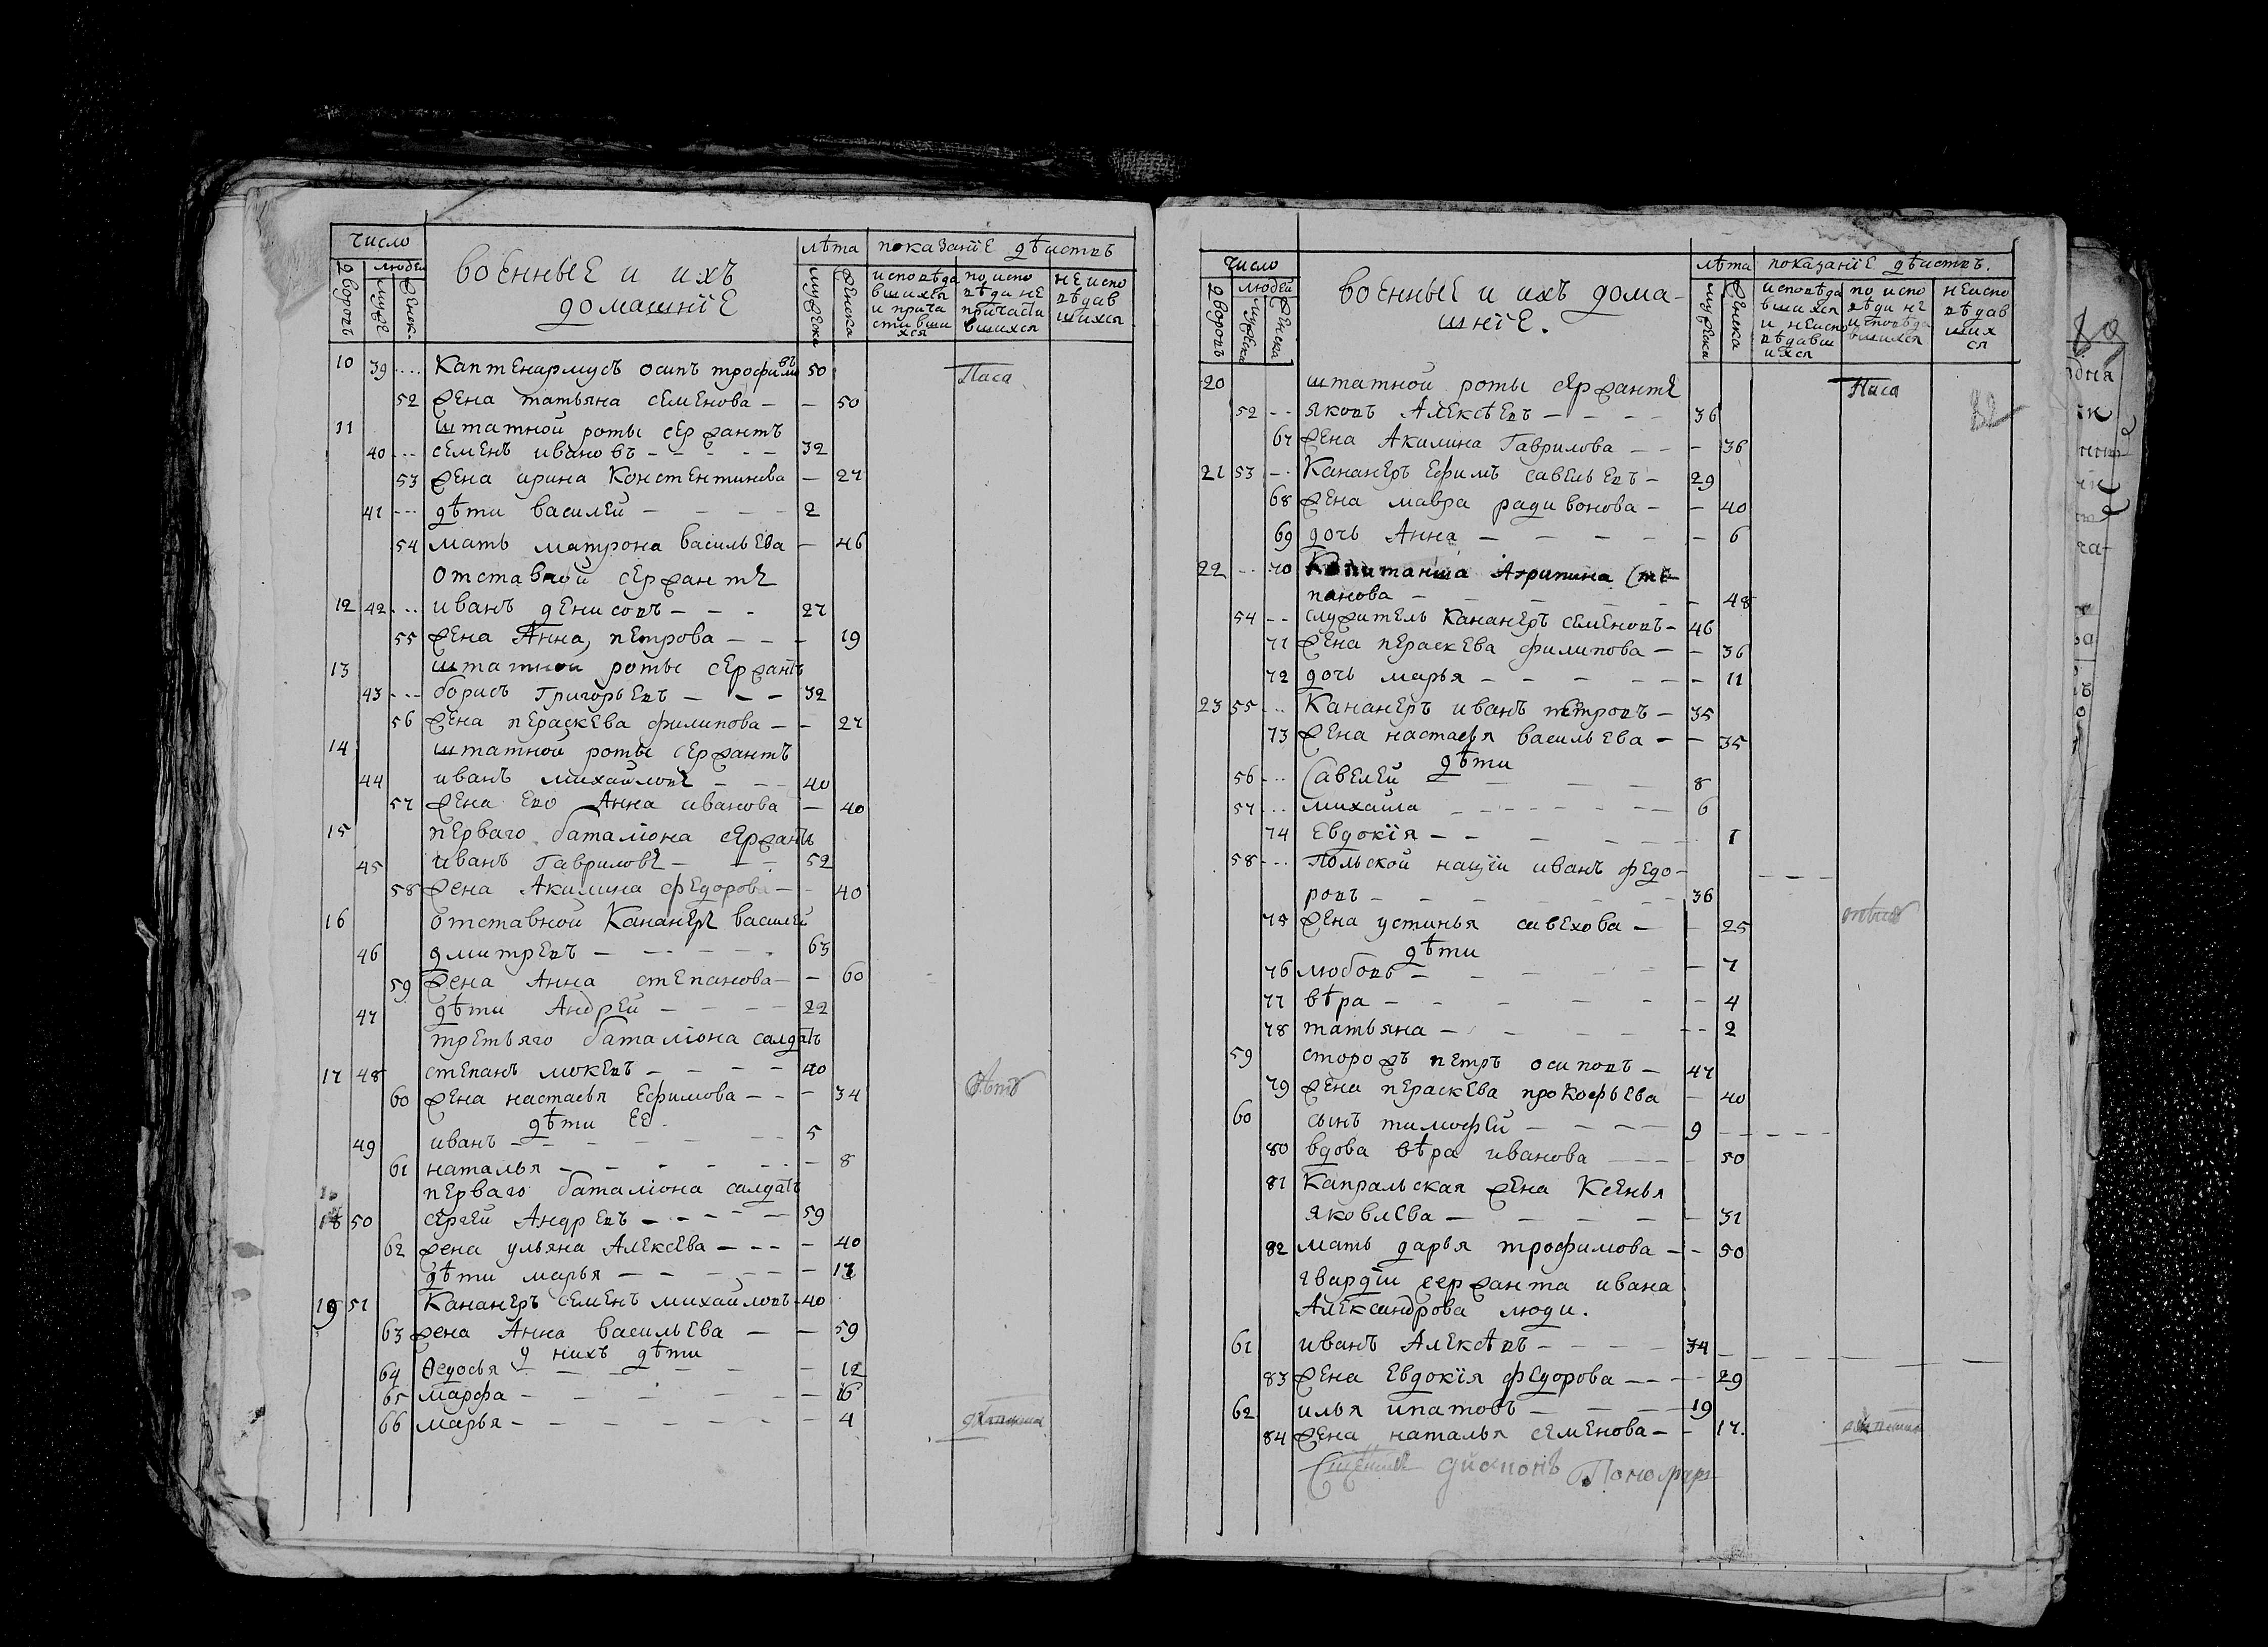 число
военные и ихъ
домашнїе
лѣта
показанїе дѣиствъ
дворовъ
людей
мужес
женск.
мужеска
женска
исповѣда
вшихся
и прича
стивши
хся
по испо
вѣди не
причасти
вшихся
не испо
вѣдав
шихся
10 39 ... Каптенармусъ осипъ трофимовъ 50
52 жена татьяна семенова — — 50
11 штатной роты сержантъ
40 ... семенъ ивановъ — — — — 32
53 жена ирина Констентинова — 27
41 --- дѣти василей — — — — 2
54 мать матрона васильева — 46
отставной сержантъ
12 42 ... иванъ денисовъ — — - 27
55 жена Анна петрова — — — 19
13 штатной роты сержантъ
43 --- борисъ Григорьевъ — — — 32
56 жена пераскева филипова — — 27
14 штатной роты сержантъ
44 иванъ михайловъ — — — 40
57 жена ево Анна иванова — 40
15 перваго баталїона сержантъ
45 иванъ Гавриловъ — — — 52
58 жена Акилина федорова — - 40
16 отставной Кананеръ василей
46 дмитревъ — — — — — 63
59 жена Анна степанова — — 60
47 дѣти Андрей — — — — 22
третьяго баталїона салдатъ
17 48 степанъ мокевъ — — — — 40
60 жена настасья ефимова — — — 34
дѣти ее
49 иванъ — — — — — — 5
61 наталья — — — — — — 8
перваго баталїона салдатъ
18 50 сергей Андревъ — — — — — 59
62 жена ульяна Алексева — — — — 40
дѣти марья — — — — — — 
19 51 Кананеръ семенъ михайловъ - 40
63 жена Анна васильева — — 59
у нихъ дѣти
64 Ѳедосья — — — — — 12
65 марфа — — — — — — 
66 марья — — — — — — — 4
число
военные и ихъ дома-
шнїе.
лѣта
показанїе дѣиствъ.
дворовъ
людей
мужеска
женска
мужеска
женска
исповѣда
вшихся
и неиспо
вѣдавш
ихся
по испо
вѣди не
исповѣда
вшихся
неиспо
вѣдав
ших
ся
20 штатной роты сержантъ
52 -- яковъ Алексѣевъ — — — — 36
67 жена Акилина Гаврилова — — — 36
21 53 -- Кананеръ Ефимъ савельевъ — 29
68 жена мавра радивонова — — 40
69 дочь Анна — — — — — 6
22 -- 70 Капитанша Агрипина Сте-
панова — — — — — 48
54 -- служитель Кананеръ семеновъ - 46
71 жена пераскева филипова — — 36
72 дочь марья — — — — — — 11
23 55 ... Кананеръ иванъ петровъ — 35
73 жена настасья васильева — — 35
дѣти
56 ... Савелей — — — — 8
57 ... михаила — — — — — 6
74 Евдокїя — — — — — — 1
58 ... польской нацїи иванъ федо-
ровъ — — — — — — 36
75 жена устинья савехова — — 25
дѣти
76 любовь — — — — — 7
77 вѣра — — — — — — 4
78 татьяна — — — — — 2
59 сторожъ петръ осиповъ — 47
79 жена пераскева прокофьева — 40
60 сынъ тимофей — — — — 9
80 вдова вѣра иванова — — — — 50
81 Капральская жена Ксенья
яковлева — — — — — 31
82 мать дарья трофимова — — 50
гвардїи сержанта ивана
Александрова люди.
61 иванъ Алексѣвъ — — — — 34
83 жена Евдокїя федорова — — — 29
62 илья ипатовъ — — — — 19
84 жена наталья семенова — — 17.
дйаконъ Пономарь